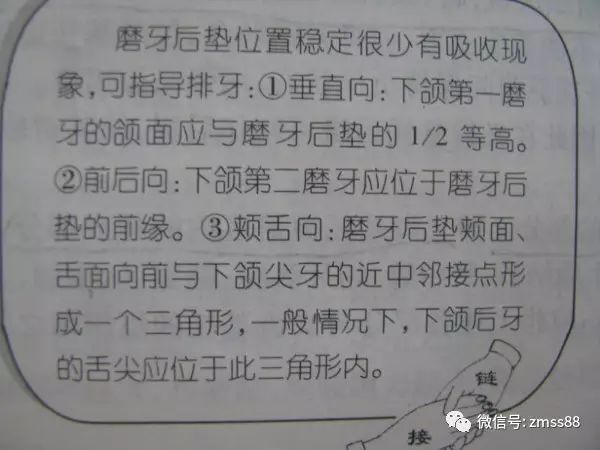 磨牙后垫位置稳定很少有吸收现
象,可指导排牙:①垂直向:下颌第一磨
牙的颌面应与磨牙后垫的 1/2 等高。
②前后向:下颌第二磨牙应位于磨牙后
垫的前缘。③颊舌向:磨牙后垫颊面、
舌面向前与下颌尖牙的近中邻接点形
成一个三角形,一般情况下,下颌后牙
的舌尖应位于此三角形内。
链
接
微信号: zmss88